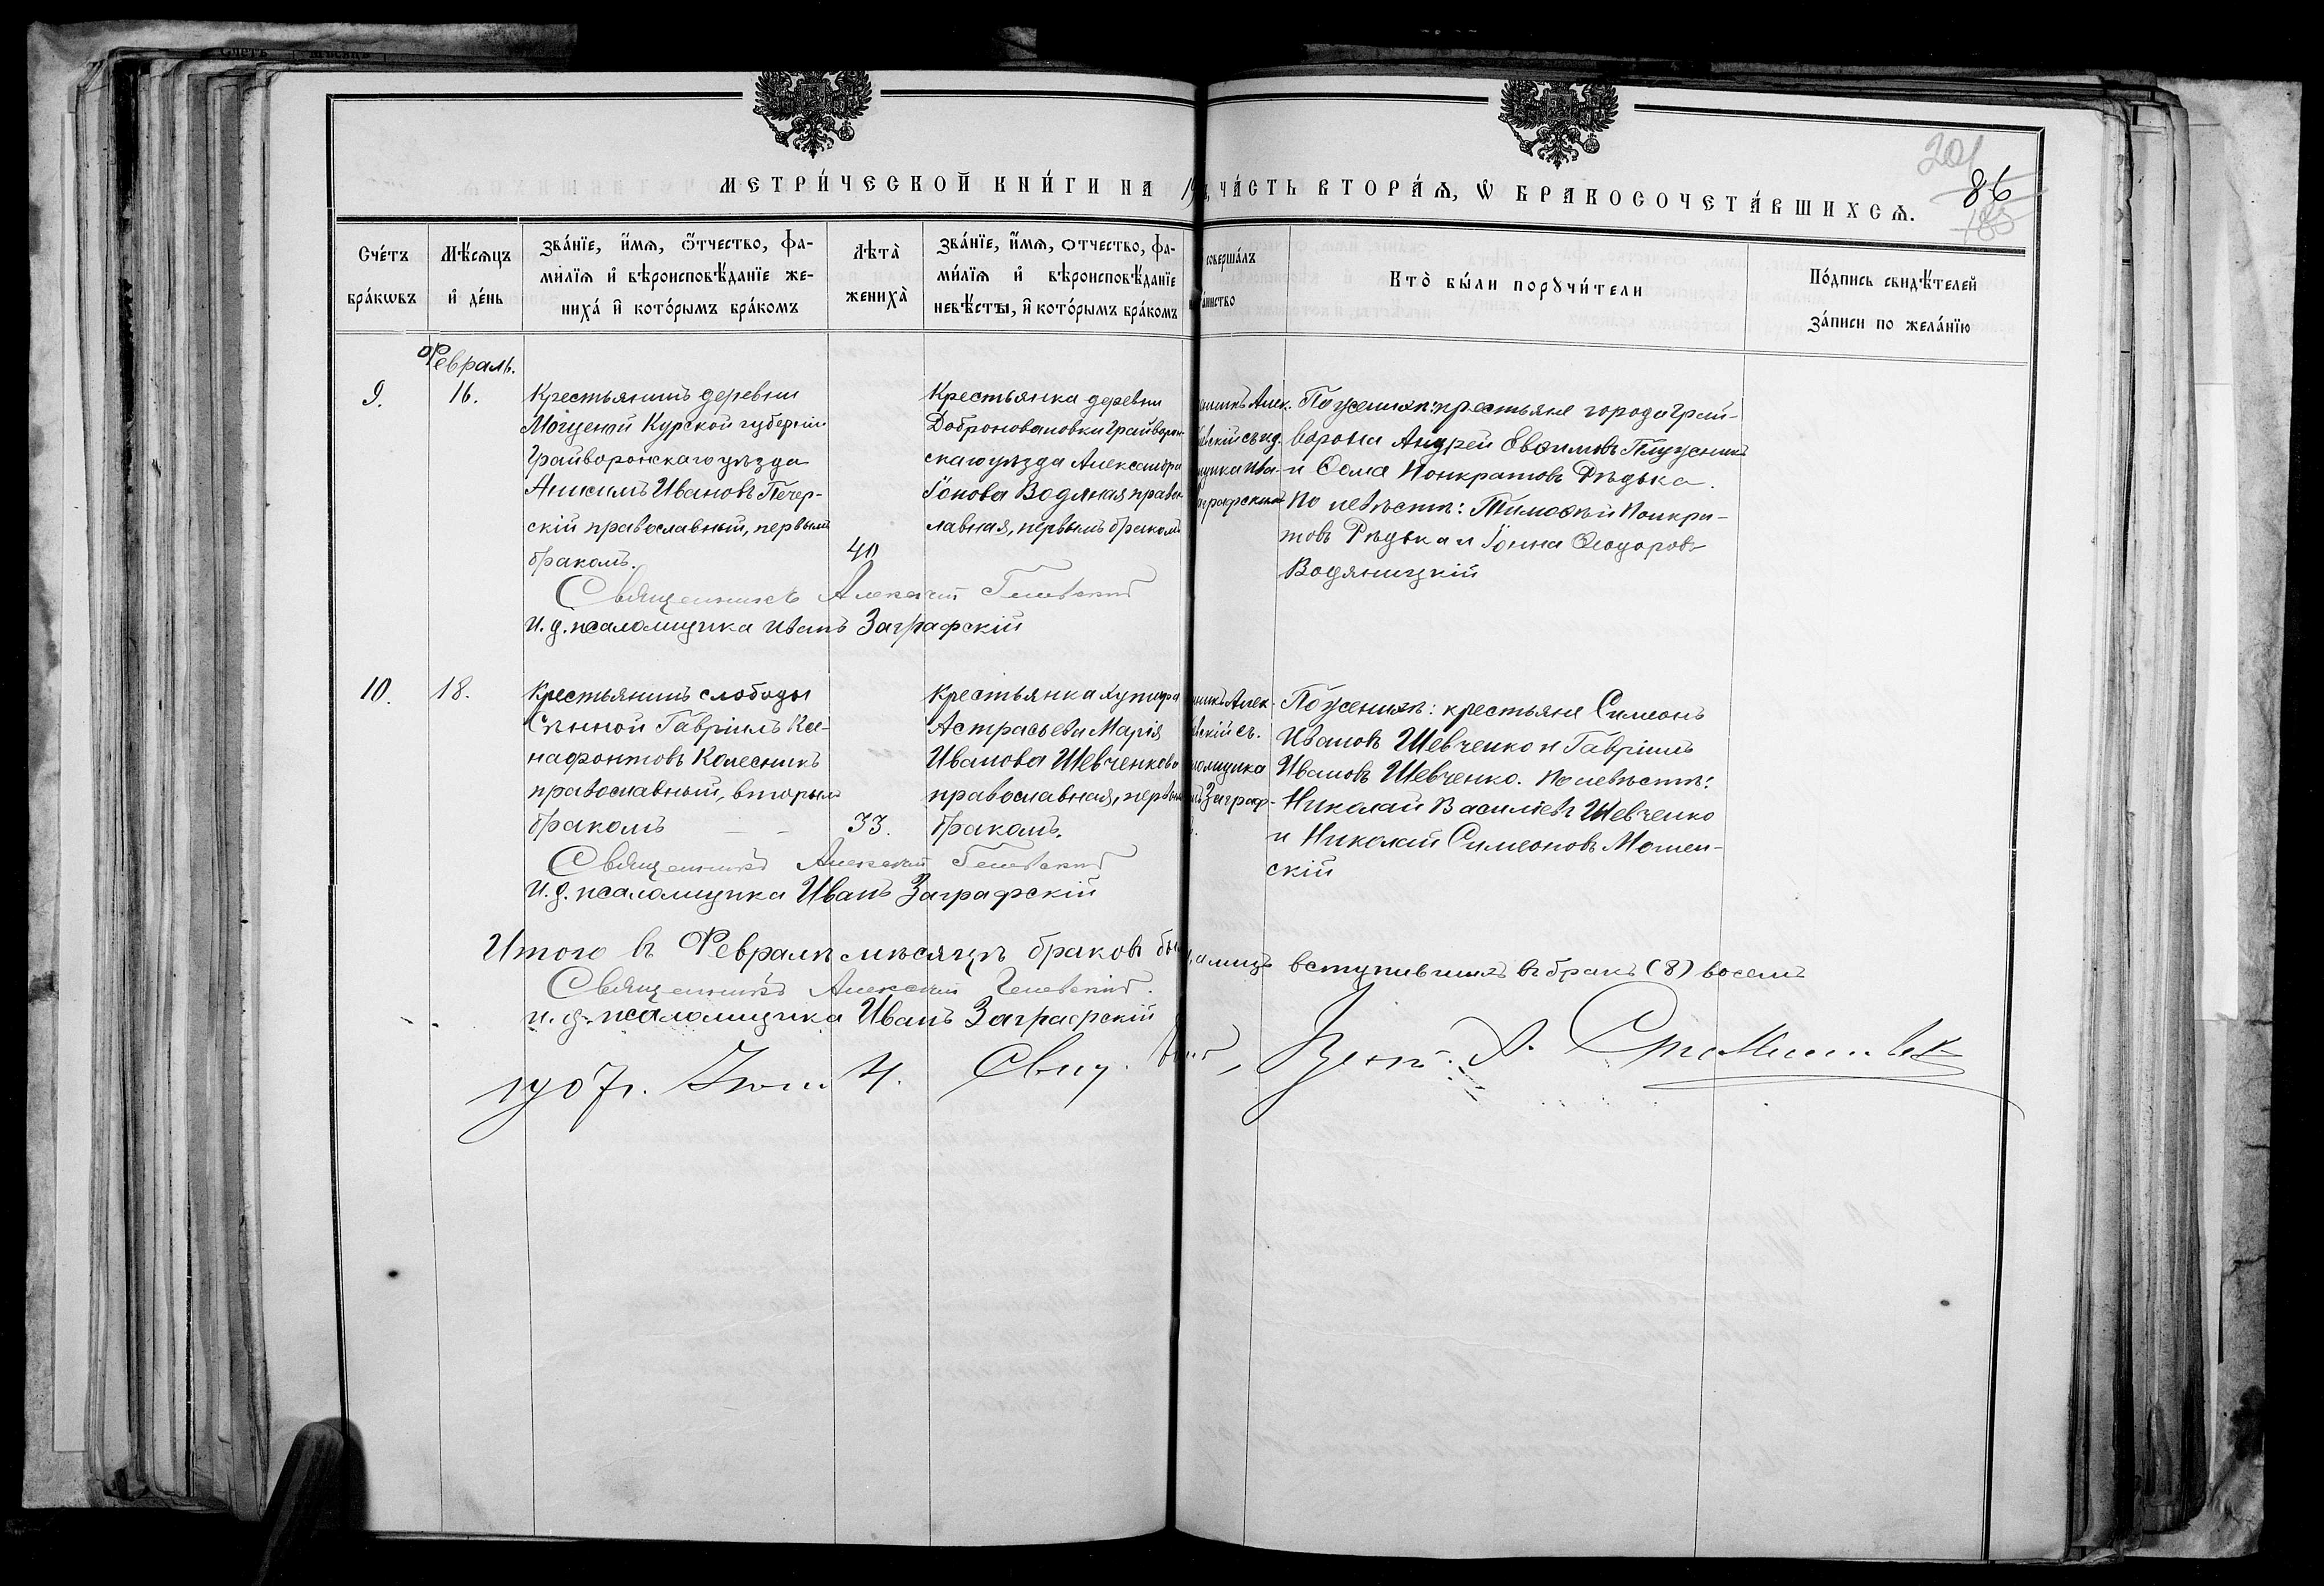 МЕТРИ́ЧЕСКОЙ КНИ́ГИ НА 19
ЧА́СТЬ ВТОРА́Ѧ, Ѡ БРАКОСОЧЕТА́ВШИХСѦ.
201
86
185
Сче́тъ бра́кѡвъ
Мѣ́сѧцъ и҆ де́нь
Зва́нїе, и҆́мѧ, ѻ҆́тчество, фа-
ми́лїѧ и҆ вѣроисповѣ́данїе же-
ниха́ и҆ кото́рымъ бра́комъ
Лѣта̀ жениха̀
Зва́нїе, и҆́мѧ, ѻтчество, фа-
ми́лїѧ и҆ вѣроисповѣ́данїе
невѣ́сты, и҆ кото́рымъ бра́комъ
соверша́лъ
таинство
Кто̀ бы́ли порꙋчи́тели
По́дпись свидѣ́телей
за́писи по жела́нїю
Февраль.
9.
16.
Крестьянинъ деревни
Мощеной Курской губерніи
Грайворонскаго уѣзда
Анкимъ Ивановъ Печер-
скій православный, первымъ
бракомъ.
40
Крестьянка деревни
Доброивановки Грайворон-
скаго уѣзда Александра
Іонова Водяная правос-
лавная, первымъ бракомъ
По женихѣ: крестьяне города Грай-
ворона Андрей Евфимовъ Плужникъ
и Ѳома Понкратовъ Рѣдька.
По невѣстѣ: Тимоѳей Понкра-
товъ Рѣдька и Іонна Ѳеодоровъ
Водяницкій
Священникъ Алексій
И. д. псаломщика Иванъ Заграфскій
10.
18.
Крестьянинъ слободы
Сѣнной Гавріилъ Кс-
нафонтовъ Колесникъ
православный, вторымъ
бракомъ
33.
Крестьянка хутора
Астрасьева Марія
Иванова Шевченкова
православная, первымъ
бракомъ.
По женихѣ: крестьяне Симеонъ
Ивановъ Шевченко и Гавріилъ
Ивановъ Шевченко. По невѣстѣ:
Николай Василіевъ Шевченко
и Николай Симеоновъ Мошен-
скій
Священникъ Алексій
И. д. псаломщика Иванъ Заграфскій
Итого въ Февралѣ мѣсяцѣ браковъ
а лицъ вступившихъ въ бракъ (8) восемь
Священникъ Алексій
и. д. псаломщика Иванъ Заграфскій
1907 г. 4. Свид.